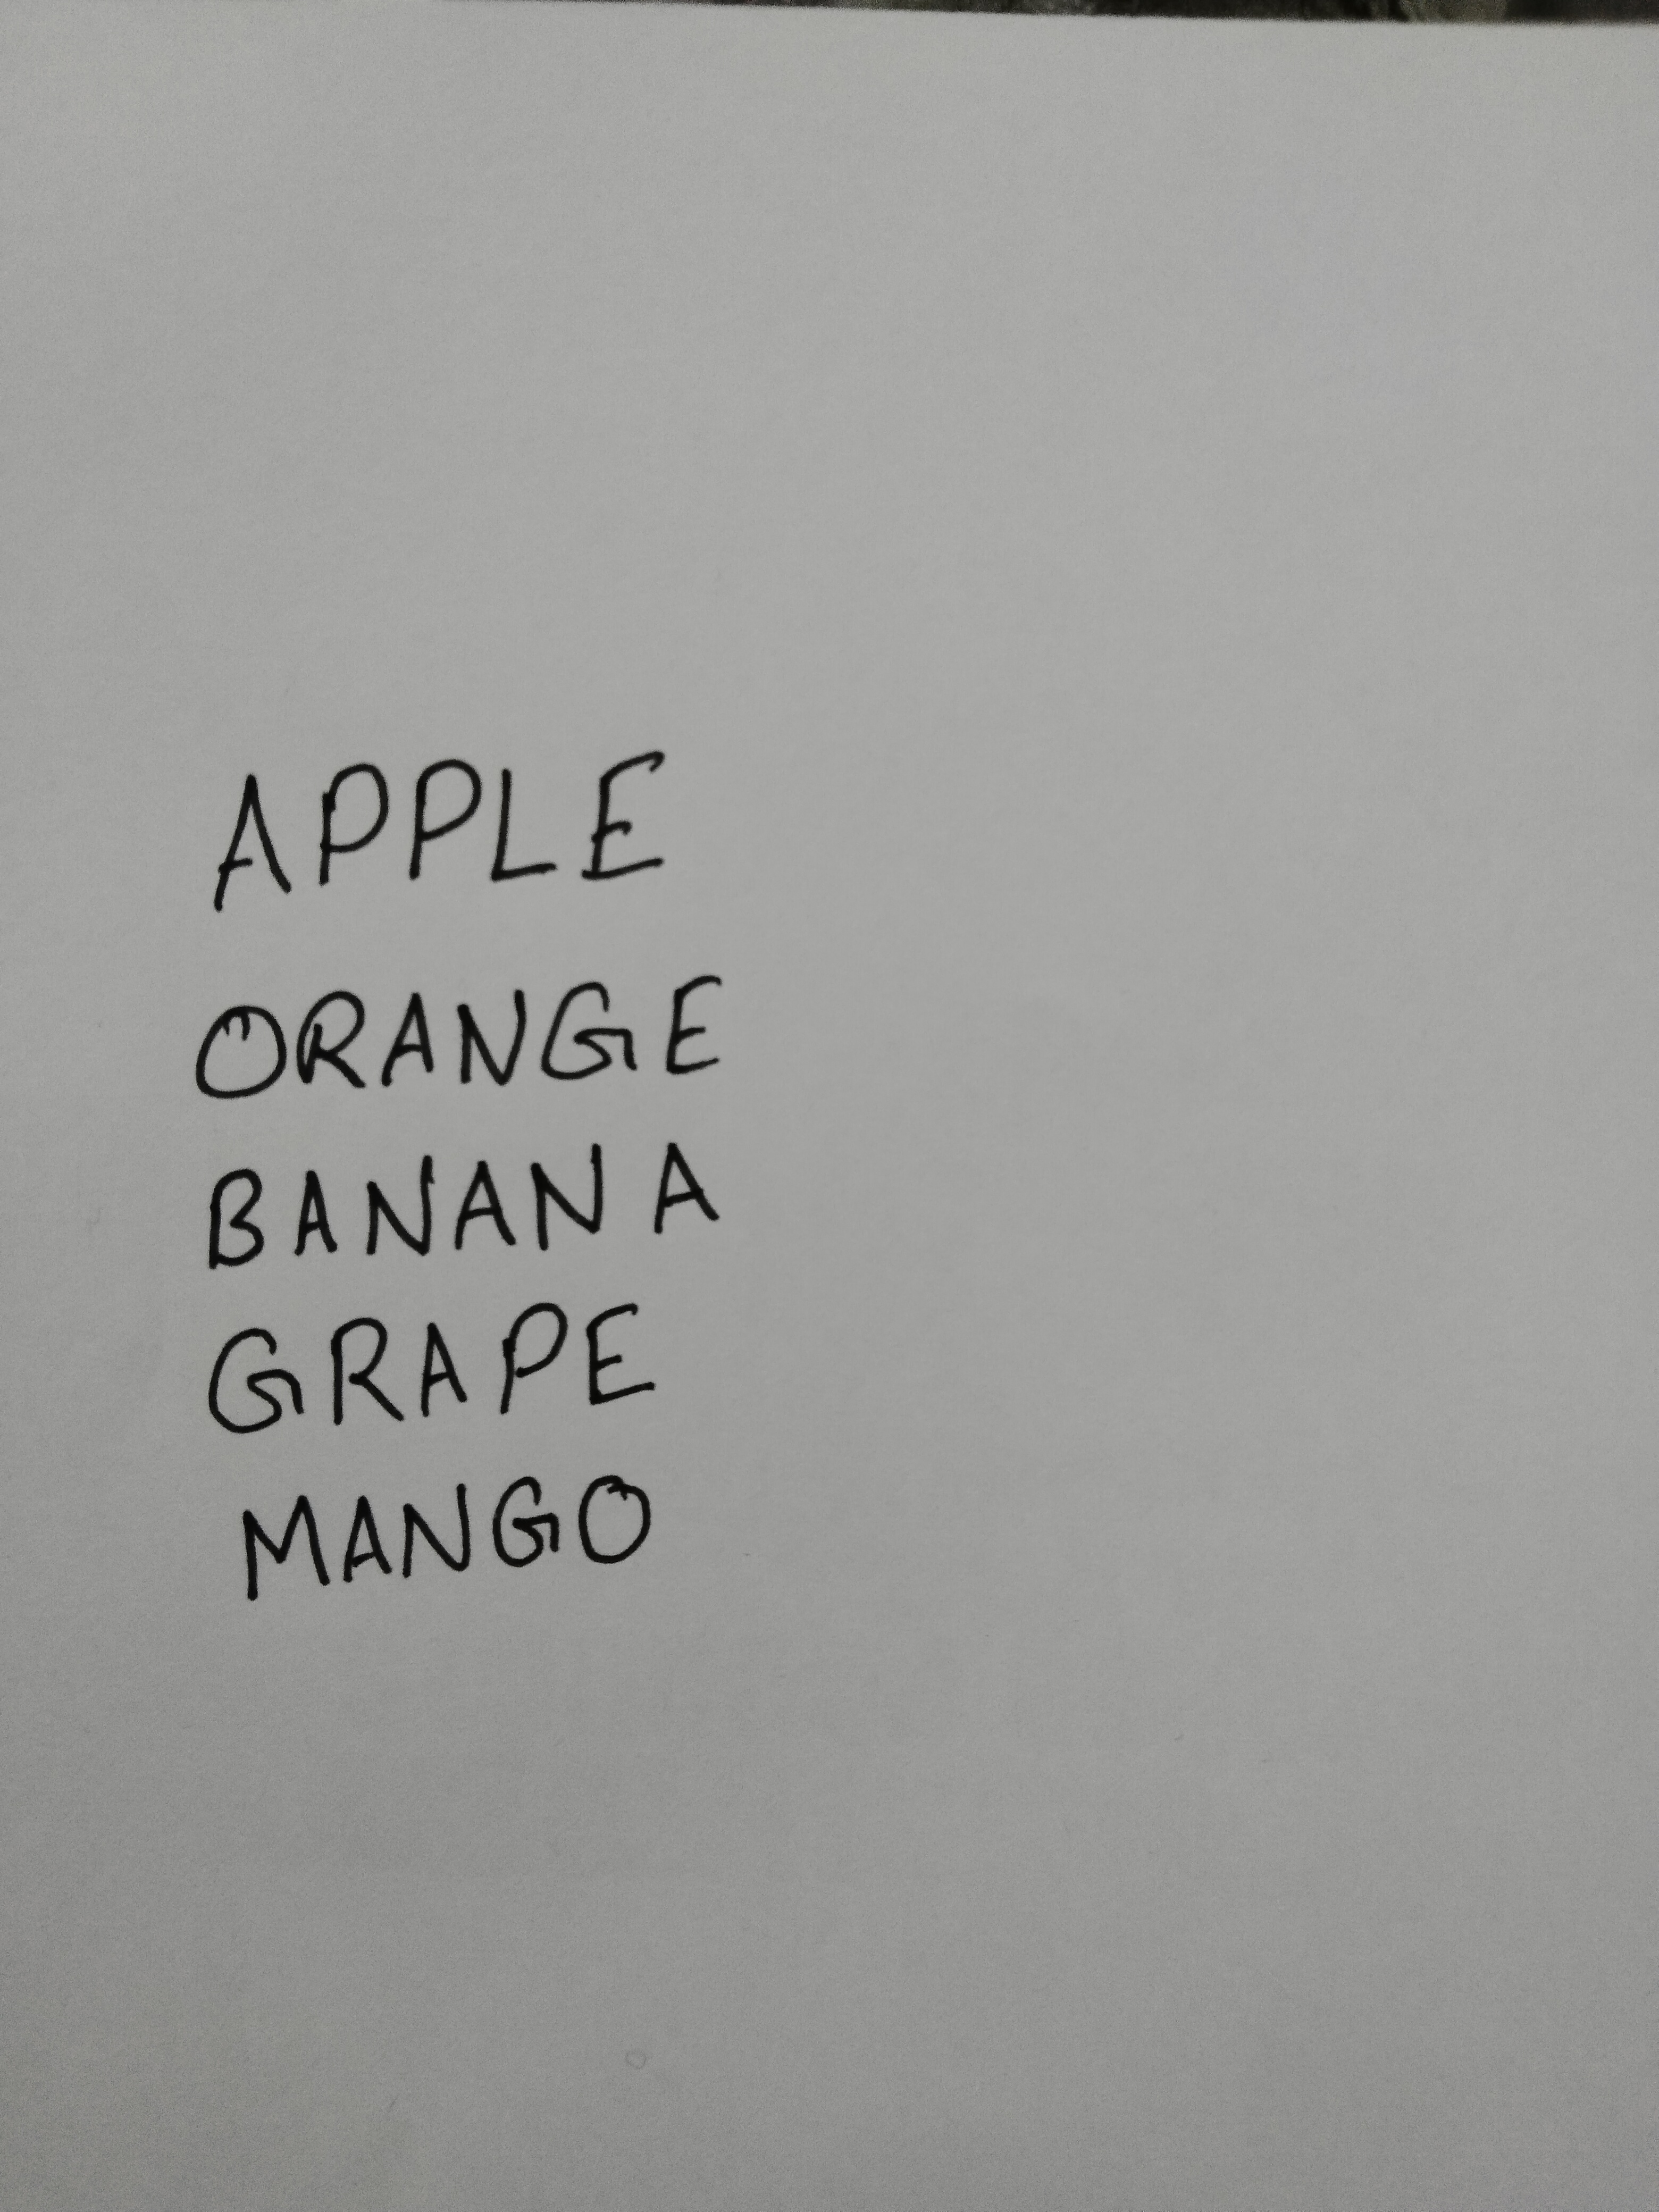 APPLE
ORANGE
BANANA
GRAPE
MANGO